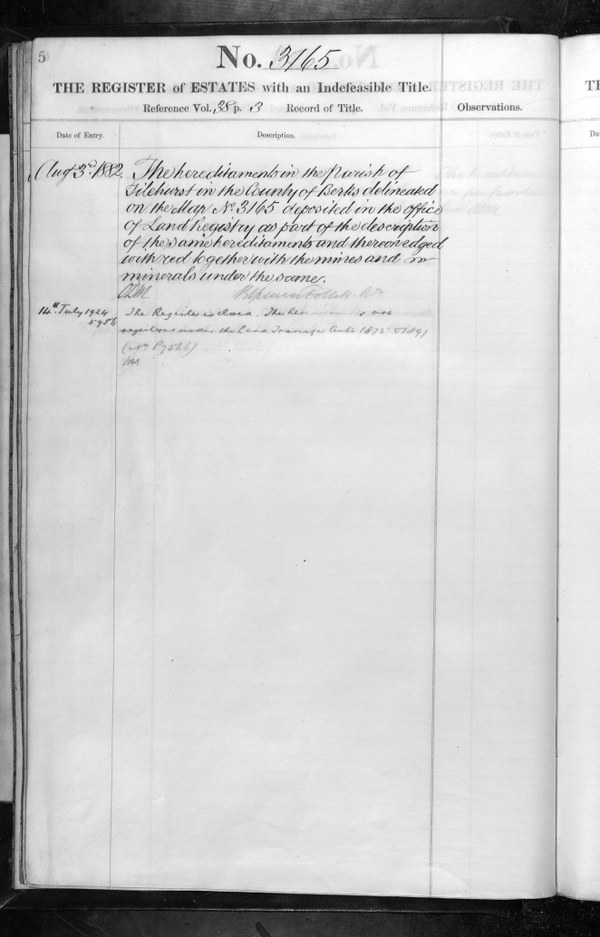 5
No. 3165
THE REGISTER of ESTATES with an Indefeasible Title.
Reference Vol. 38 p. 3 Record of Title.
Observations.
Date of Entry.
Description.
Aug 3rd. 1882. The hereditaments in the Parish of
Tilehurst in the County of Berks delineated
on the Map No. 3165 deposited in the office
of Land Registry as part of the description
of the same hereditaments and thereon edged
with red together with the mines and
minerals under the same.
14th July 1924 The Register is closed. The are
registered under the Land Transfer Acts 1875 &
TH
Da